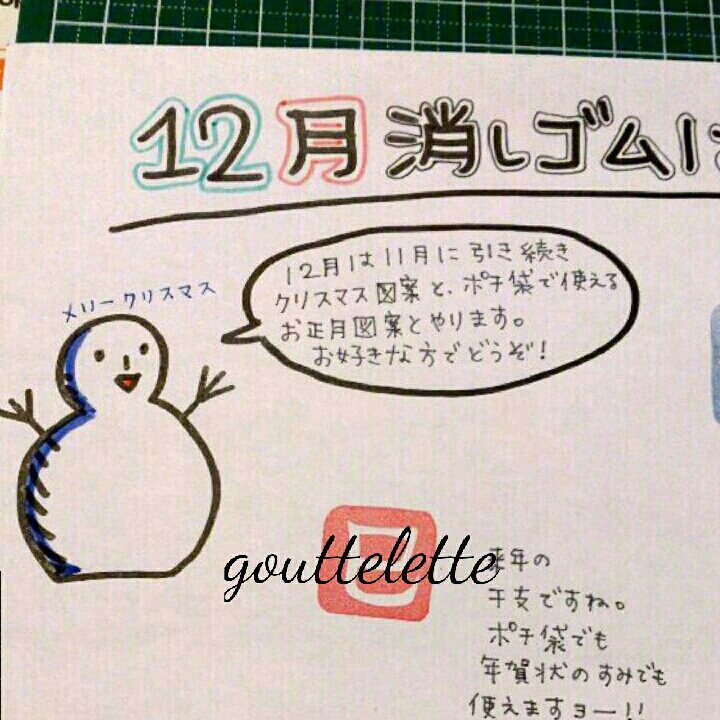 12月 消しゴムは
メリークリスマス
12月は11月に引き続き
クリスマス図案と、ポチ袋で使える
お正月図案とやります。
お好きな方でどうぞ!
巳
gouttelette
来年の
干支ですね。
ポチ袋でも
年賀状のすみでも
使えますヨー!!